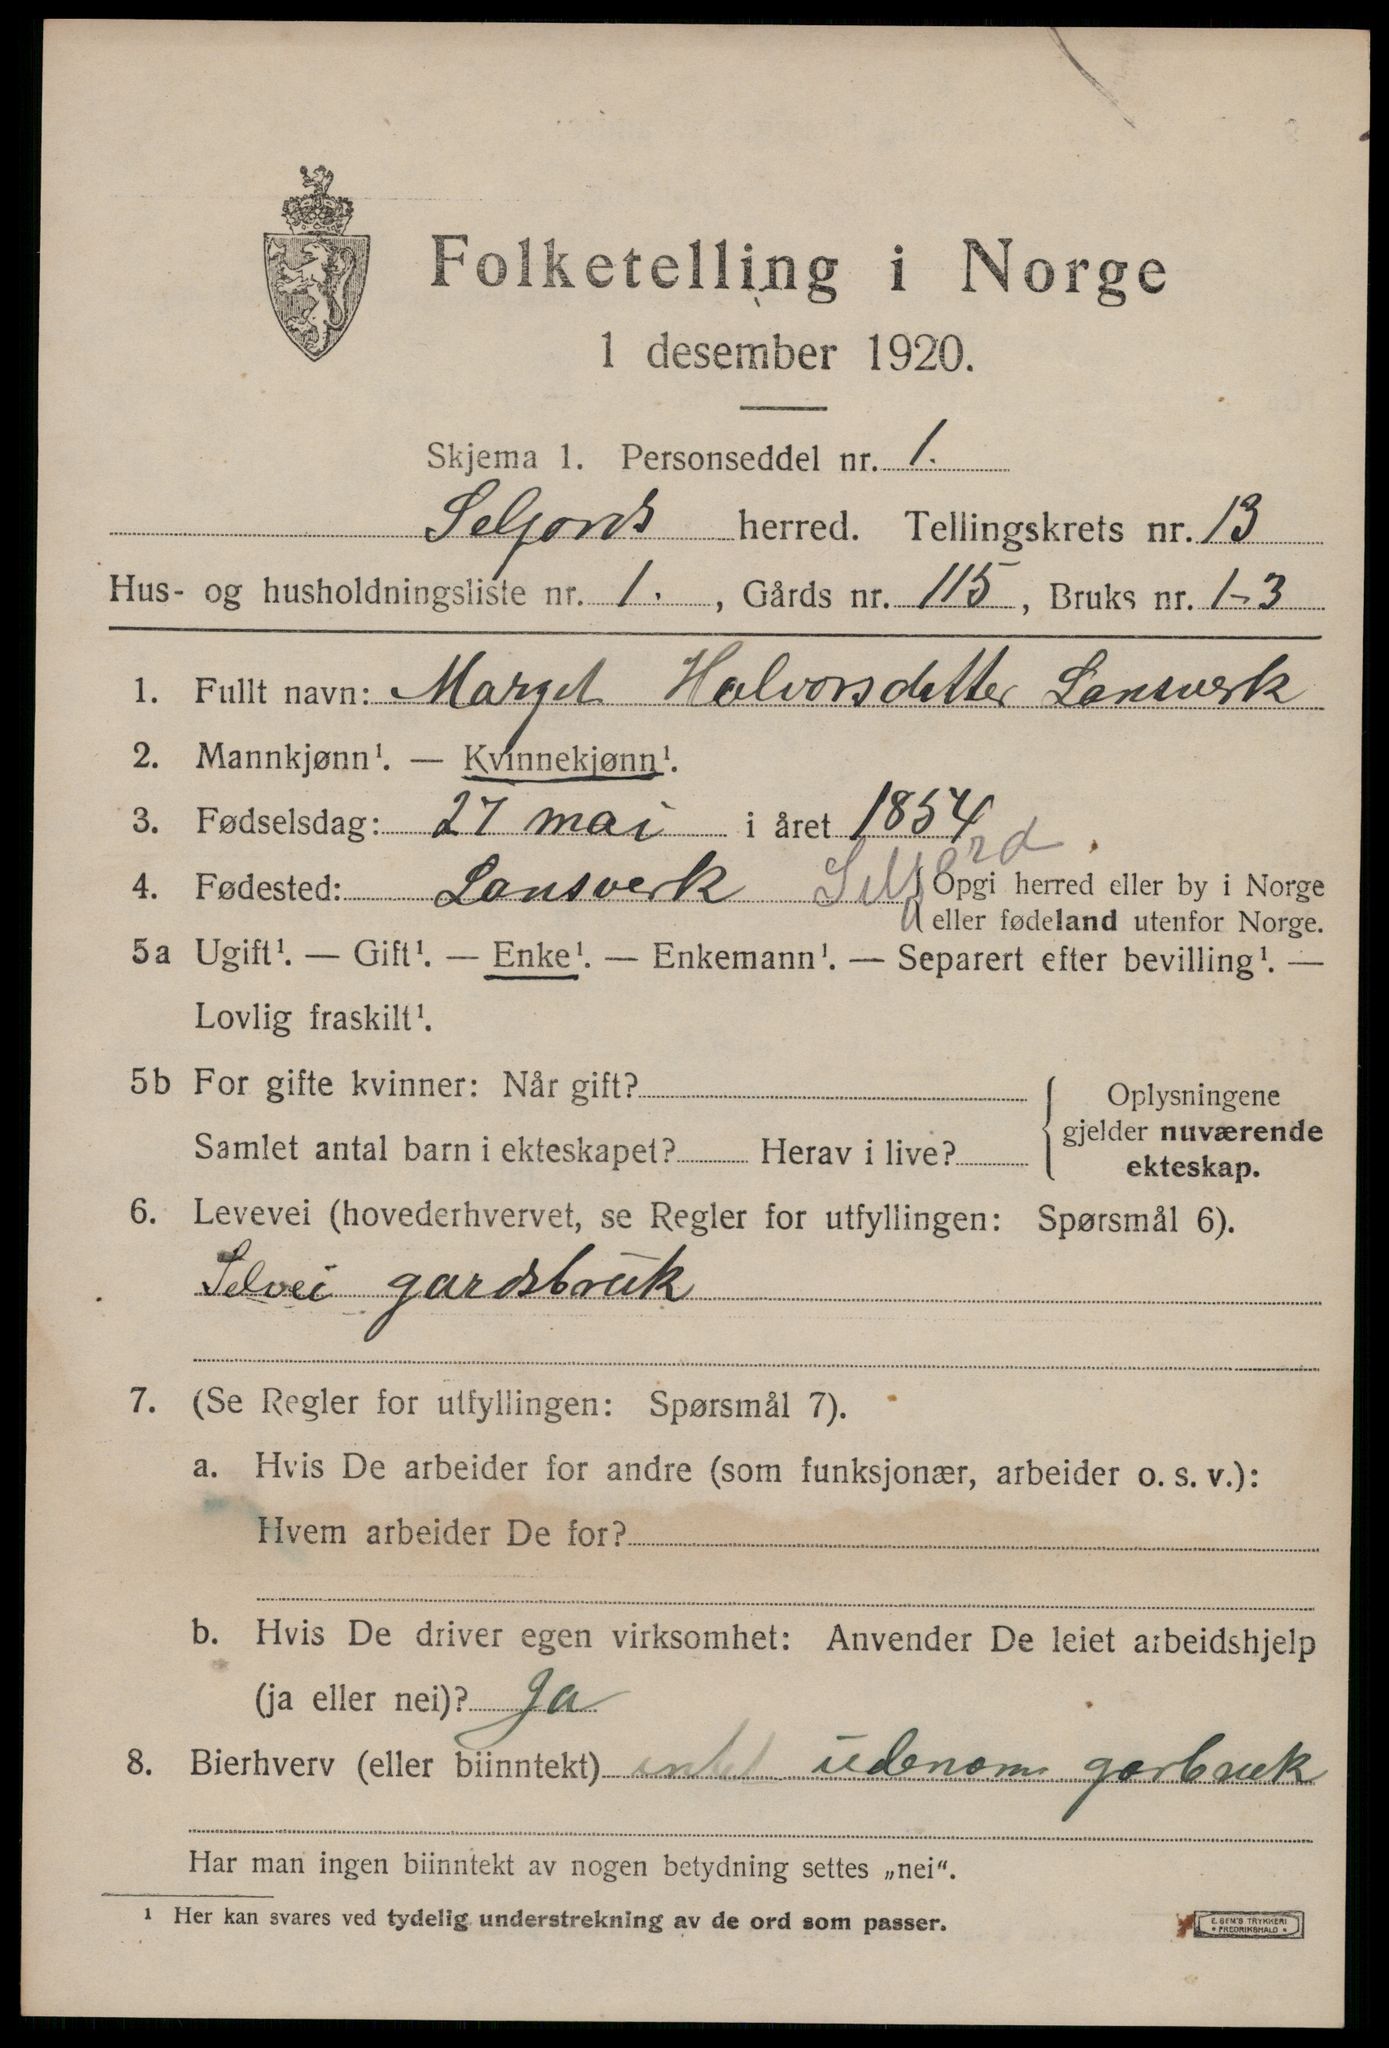 Folketelling i Norge
1 desember 1920.
Skjema 1. Personseddel nr. 1.
Seljords herred. Tellingskrets nr. 13
Hus- og husholdningsliste nr. 1. , Gårds nr. 115, Bruks nr. 1-3
1. Fullt navn: Margit Halvorsdatter Lonsverk
2. Mannkjønn¹. — Kvinnekjønn¹.
3. Fødselsdag: 27 mai i året 1854
4. Fødested: Lonsverk Seljord Opgi herred eller by i Norge
eller fødeland utenfor Norge.
5a Ugift¹. — Gift¹. — Enke¹. — Enkemann¹. — Separert efter bevilling¹. —
Lovlig fraskilt¹.
5b For gifte kvinner: Når gift?
Samlet antal barn i ekteskapet? Herav i live?
Oplysningene
gjelder nuværende
ekteskap.
6. Levevei (hovederhvervet, se Regler for utfyllingen: Spørsmål 6).
Selvei gardsbruk
7. (Se Regler for utfyllingen: Spørsmål 7).
a. Hvis De arbeider for andre (som funksjonær, arbeider o. s. v.):
Hvem arbeider De for?
b. Hvis De driver egen virksomhet: Anvender De leiet arbeidshjelp
(ja eller nei)? Ja
8. Bierhverv (eller biinntekt) intet udenom garbruk
Har man ingen biinntekt av nogen betydning settes „nei“.
¹ Her kan svares ved tydelig understrekning av de ord som passer.
E. SEM'S TRYKKERI
• FREDRIKSHALD •